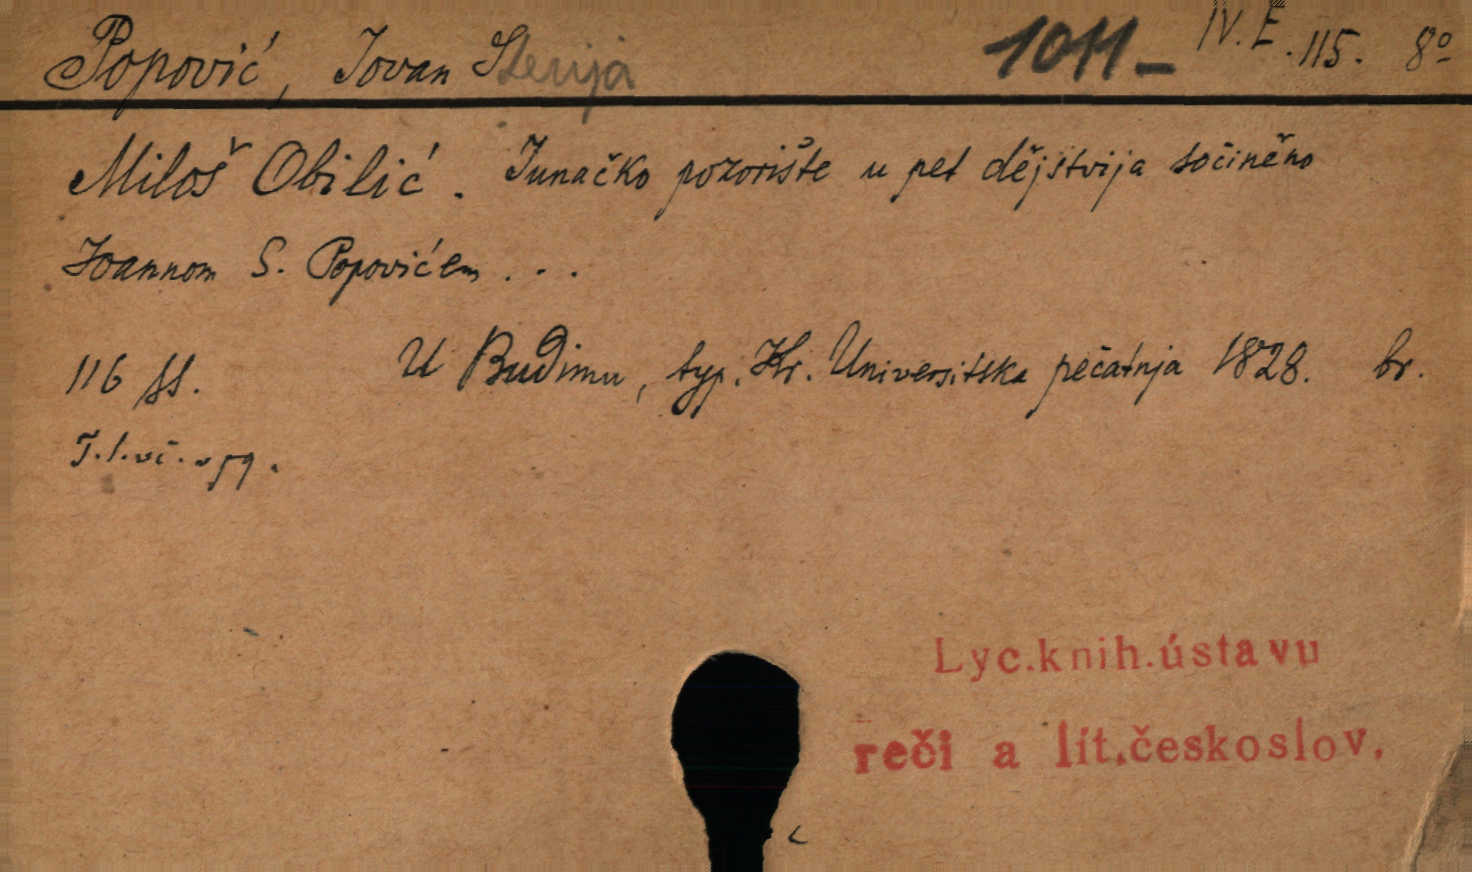 Popović, Jovan Sterija 1011- IV. E. 115. 8º
Miloš Obilić. Junačko pozorište u pet dějstvija sočiněno
Joannom S. Popovićem . . .
116 ss. U Budimu, typ. Kr. Universitska pečatnja 1828. br.
Lyc.knih.ústavu
reči a lit.českoslov.